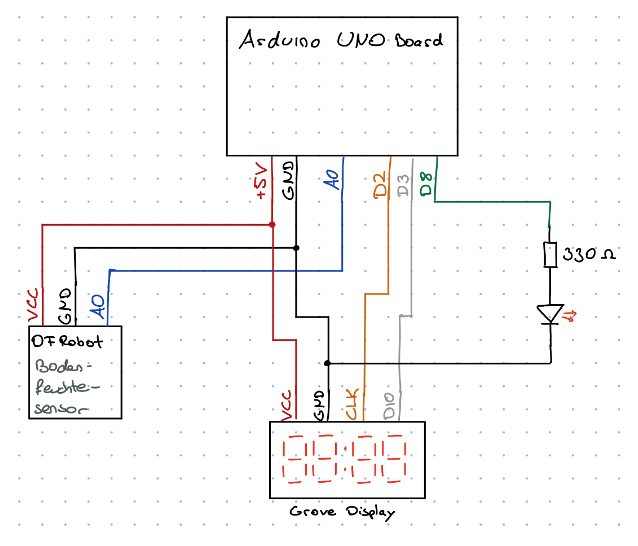 Arduino UNO Board
+5V GND A0 D2 D3 D8
330 Ω
VCC GND A0
DFRobot
Boden-
feuchte-
sensor
VCC GND CLK DIO
88:88
Grove Display